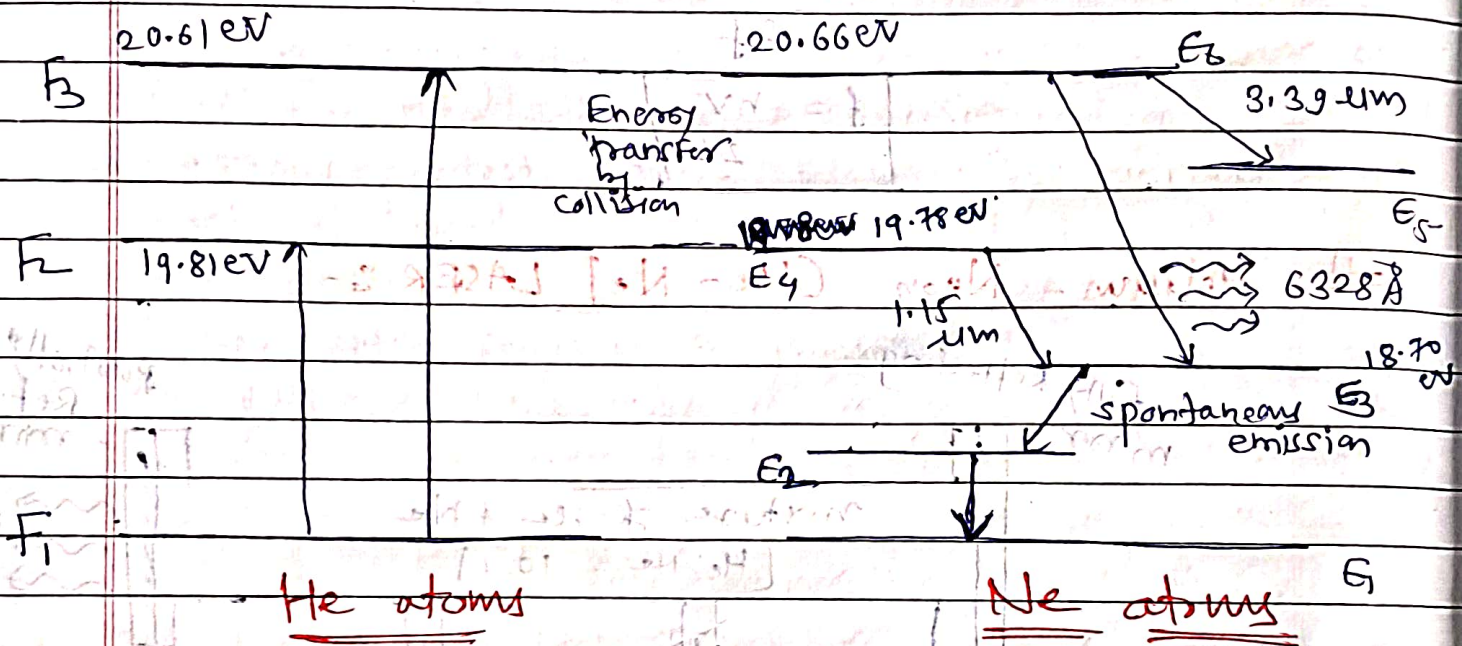 20.61 eV
20.66 eV
E6
F3
3.39 μm
Energy
transfer
by
collision
E5
19.78 eV
F2
19.81 eV
E4
6328 Å
1.15
μm
18.70
eV
E3
spontaneous
emission
E2
F1
E1
He atoms
Ne atoms